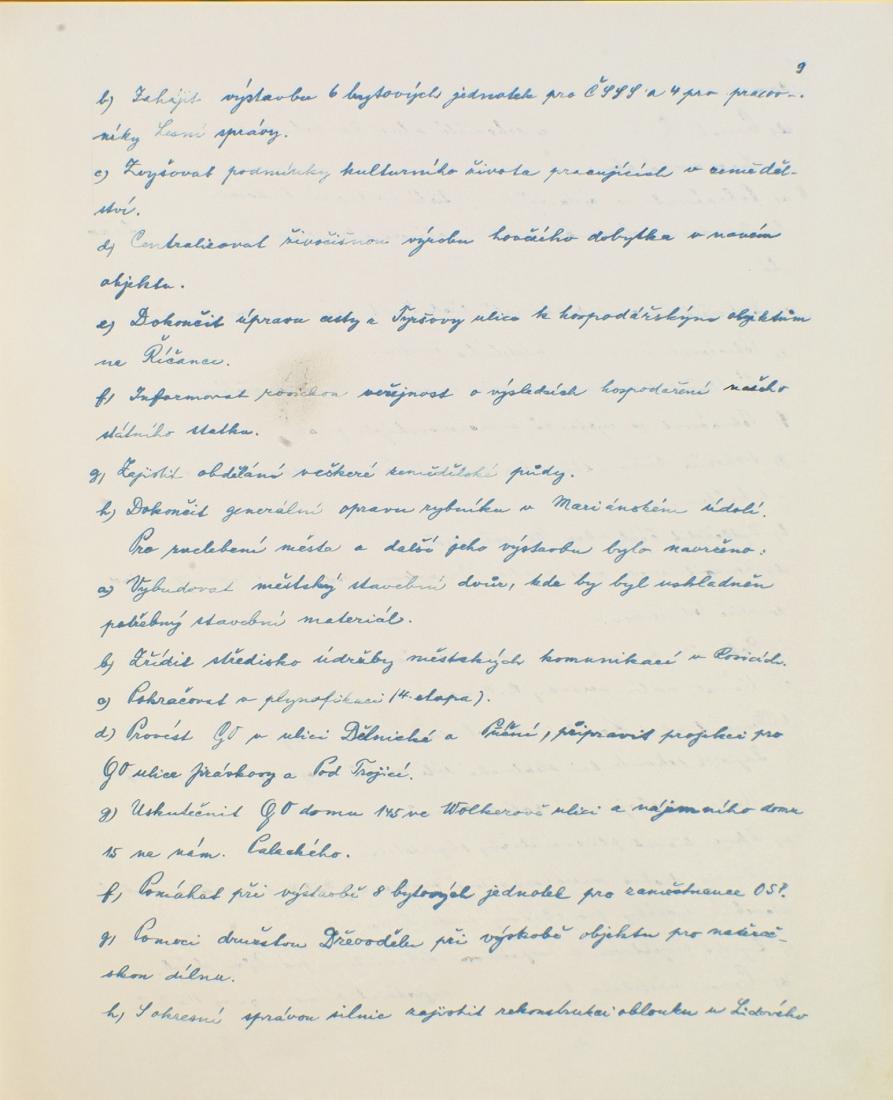 9
b) Zahájit výstavbu 6 bytových jednotek pro ČSSS a 4 pro pracov-
níky Lesní správy.
c) Zvyšovat podmínky kulturního života pracujících v zeměděl-
ství.
d) Centralizovat živočišnou výrobu hovězího dobytka v novém
objektu.
e) Dokončit úpravu cesty z Tyršovy ulice k hospodářským objektům
na Říčance.
f) Informovat rosickou veřejnost o výsledcích hospodaření našeho
státního statku.
g) Zajistit obdělání veškeré zemědělské půdy.
h) Dokončit generální opravu rybníku v Mariánském údolí.
Pro zvelebení města a další jeho výstavbu bylo navrženo:
a) Vybudovat městský stavební dvůr, kde by byl uskladněn
potřebný stavební materiál.
b) Zřídit středisko údržby městských komunikací v Rosicích.
c) Pokračovat v plynofikaci (4. etapa).
d) Provést GO v ulici Dělnické a Příční, připravit projekci pro
GO ulice Jiráskovy a Pod Trojicí.
g) Uskutečnit GO domu 145 ve Wolkerově ulici a nájemního domu
15 na nám. Palackého.
f) Pomáhat při výstavbě 8 bytových jednotek pro zaměstnance OSP.
g) Pomoci družstvu Dřevodělu při výstavbě objektu pro natěrač-
skou dílnu.
h) S okresní správou silnic zajistit rekonstrukci oblouku u Lidového